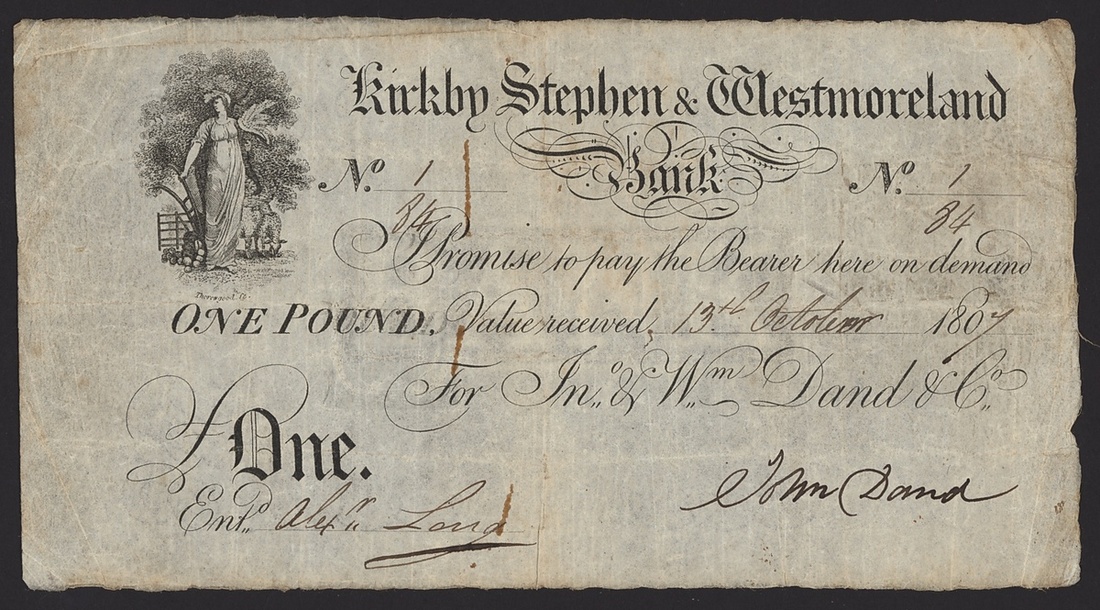 Kirkby Stephen & Westmoreland
Bank
No. 1 No. 1
84 84
I Promise to pay the Bearer here on demand
Thorowgood Sc.
ONE POUND, Value received, 13th October 1807
For Jno. & Wm. Dand & Co.
£ One.
Entd. Alexr. Lang
John Dand